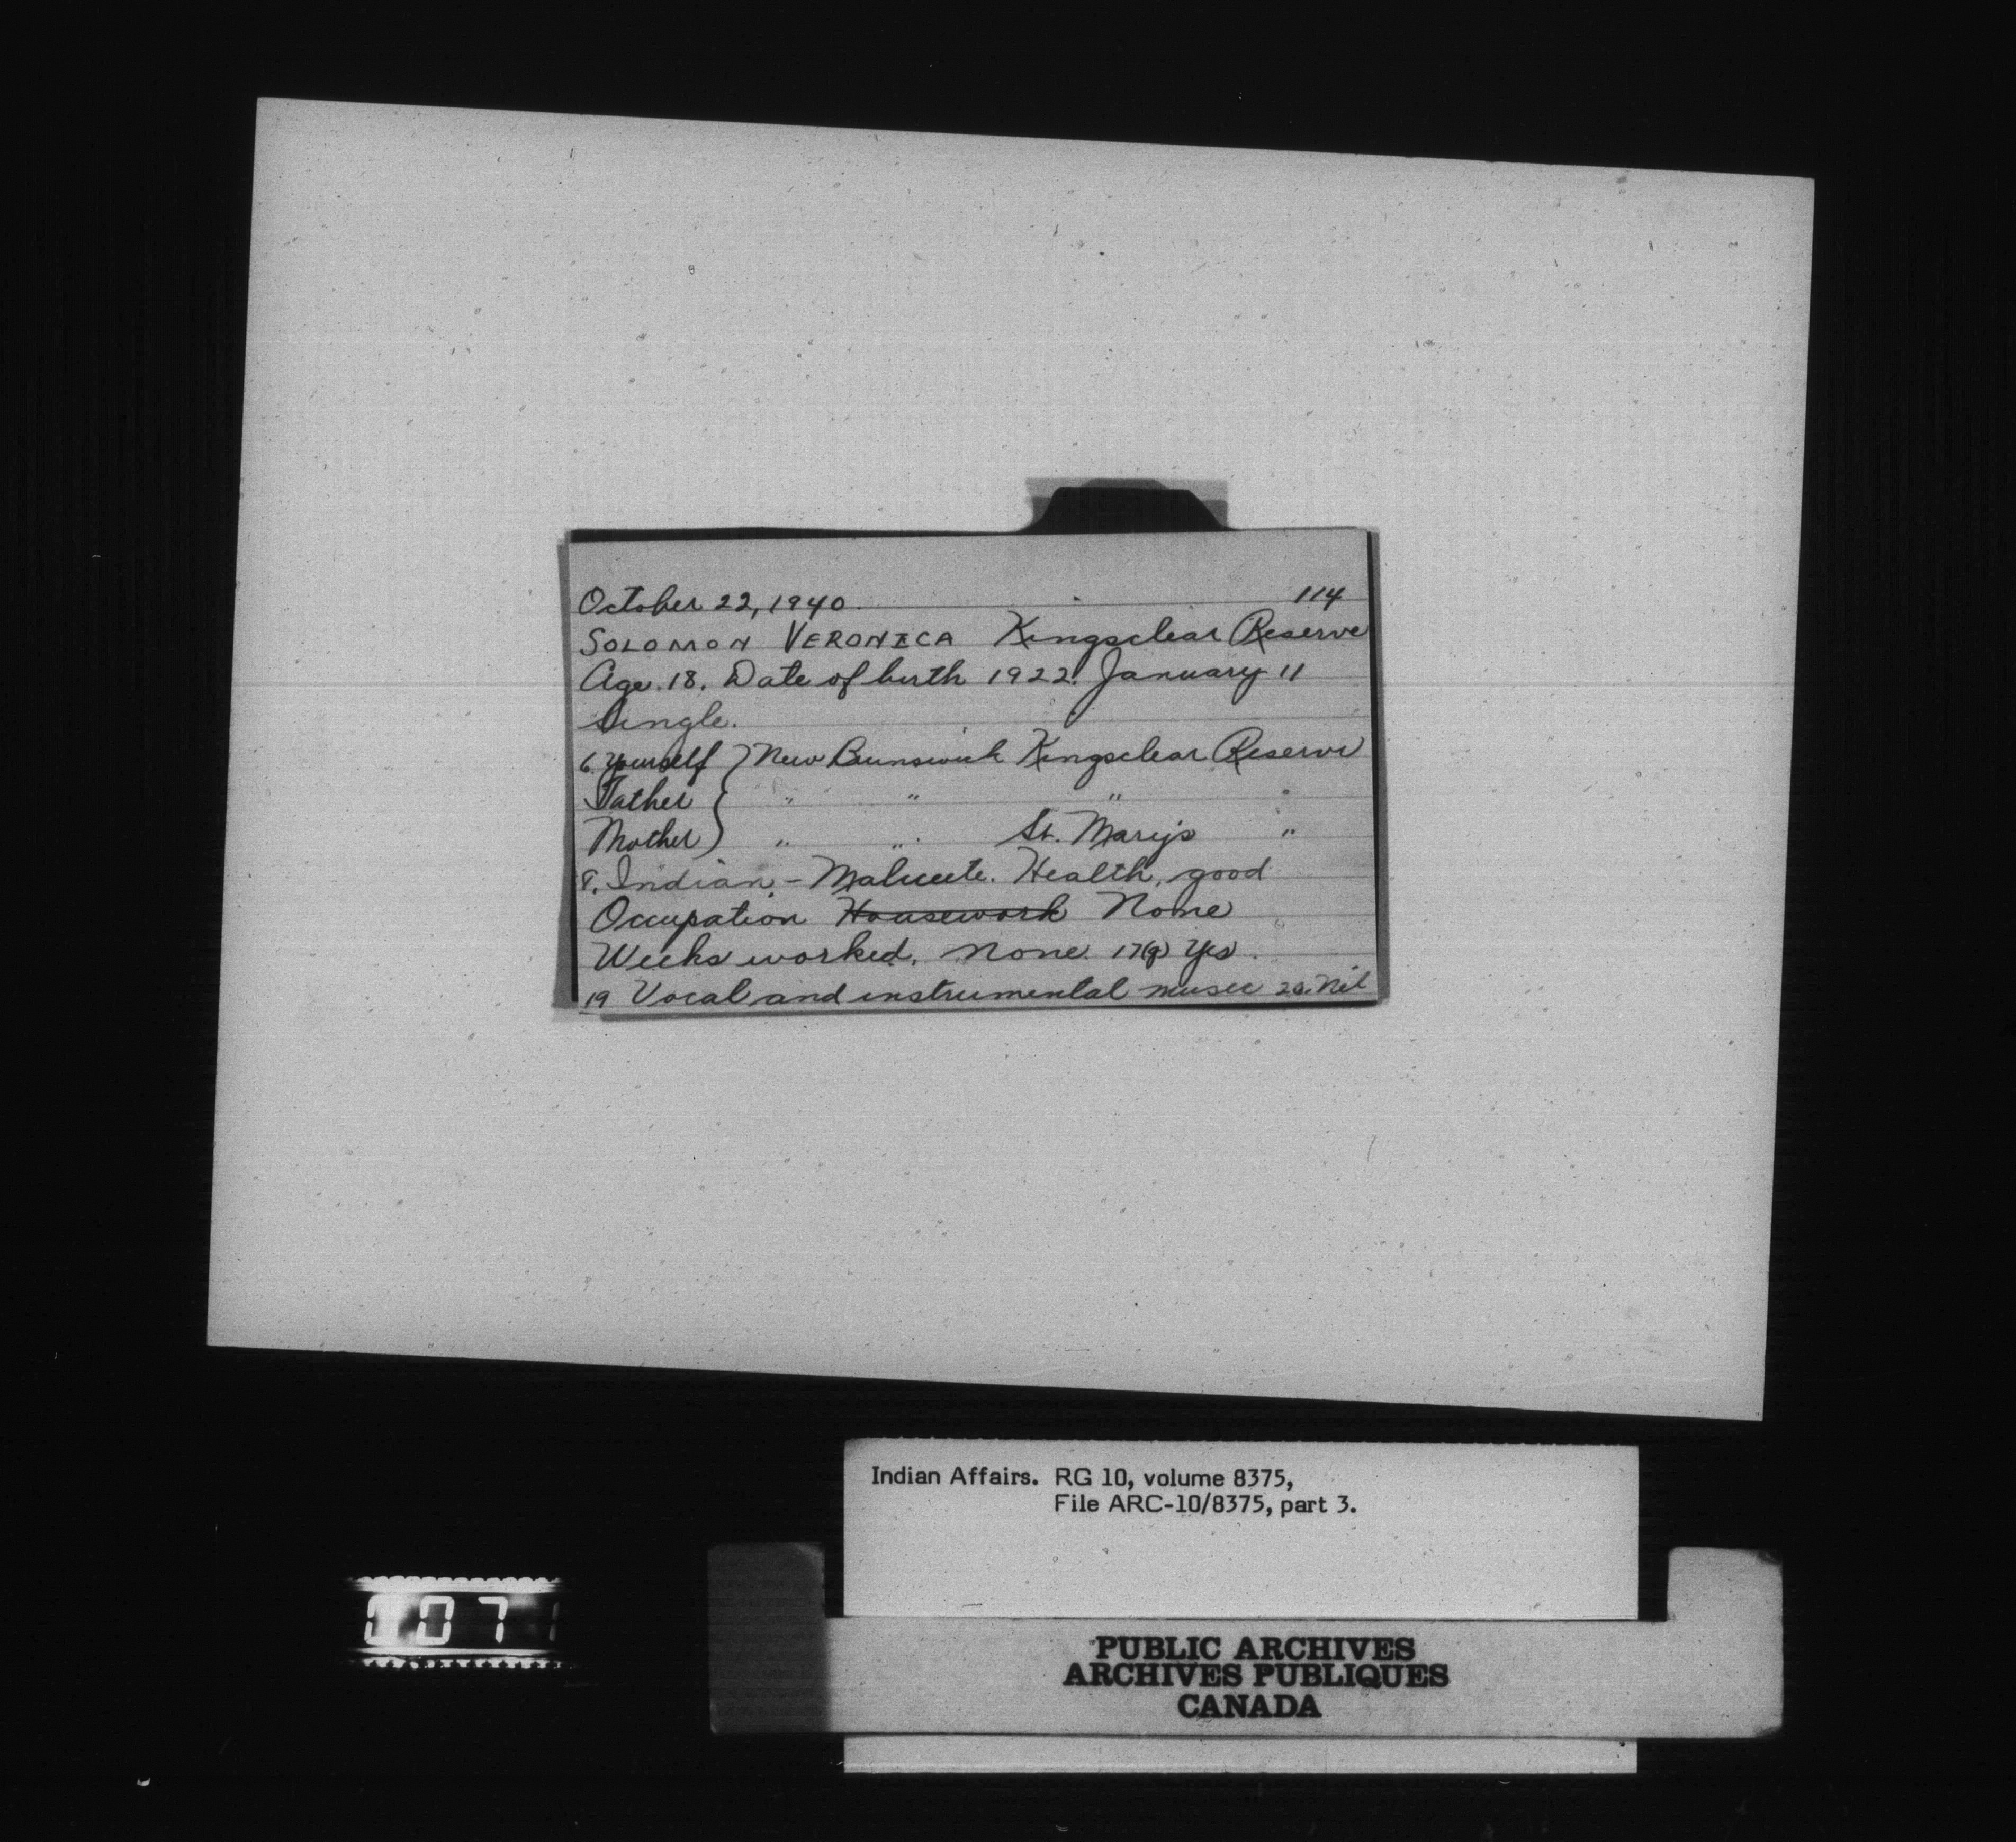 October 22, 1940. 114
SOLOMON VERONICA Kingsclear Reserve
Age. 18. Date of birth 1922. January 11
Single.
6. Yourself } New Brunswick Kingsclear Reserve
Father } " " " "
Mother } " " St. Mary's "
8. Indian - Malicete. Health, good
Occupation ~~Housework~~ None
Weeks worked. None. 17(g) Yes.
19 Vocal and instrumental music 20. Nil
Indian Affairs. RG 10, volume 8375,
File ARC-10/8375, part 3.
PUBLIC ARCHIVES
ARCHIVES PUBLIQUES
CANADA
0071